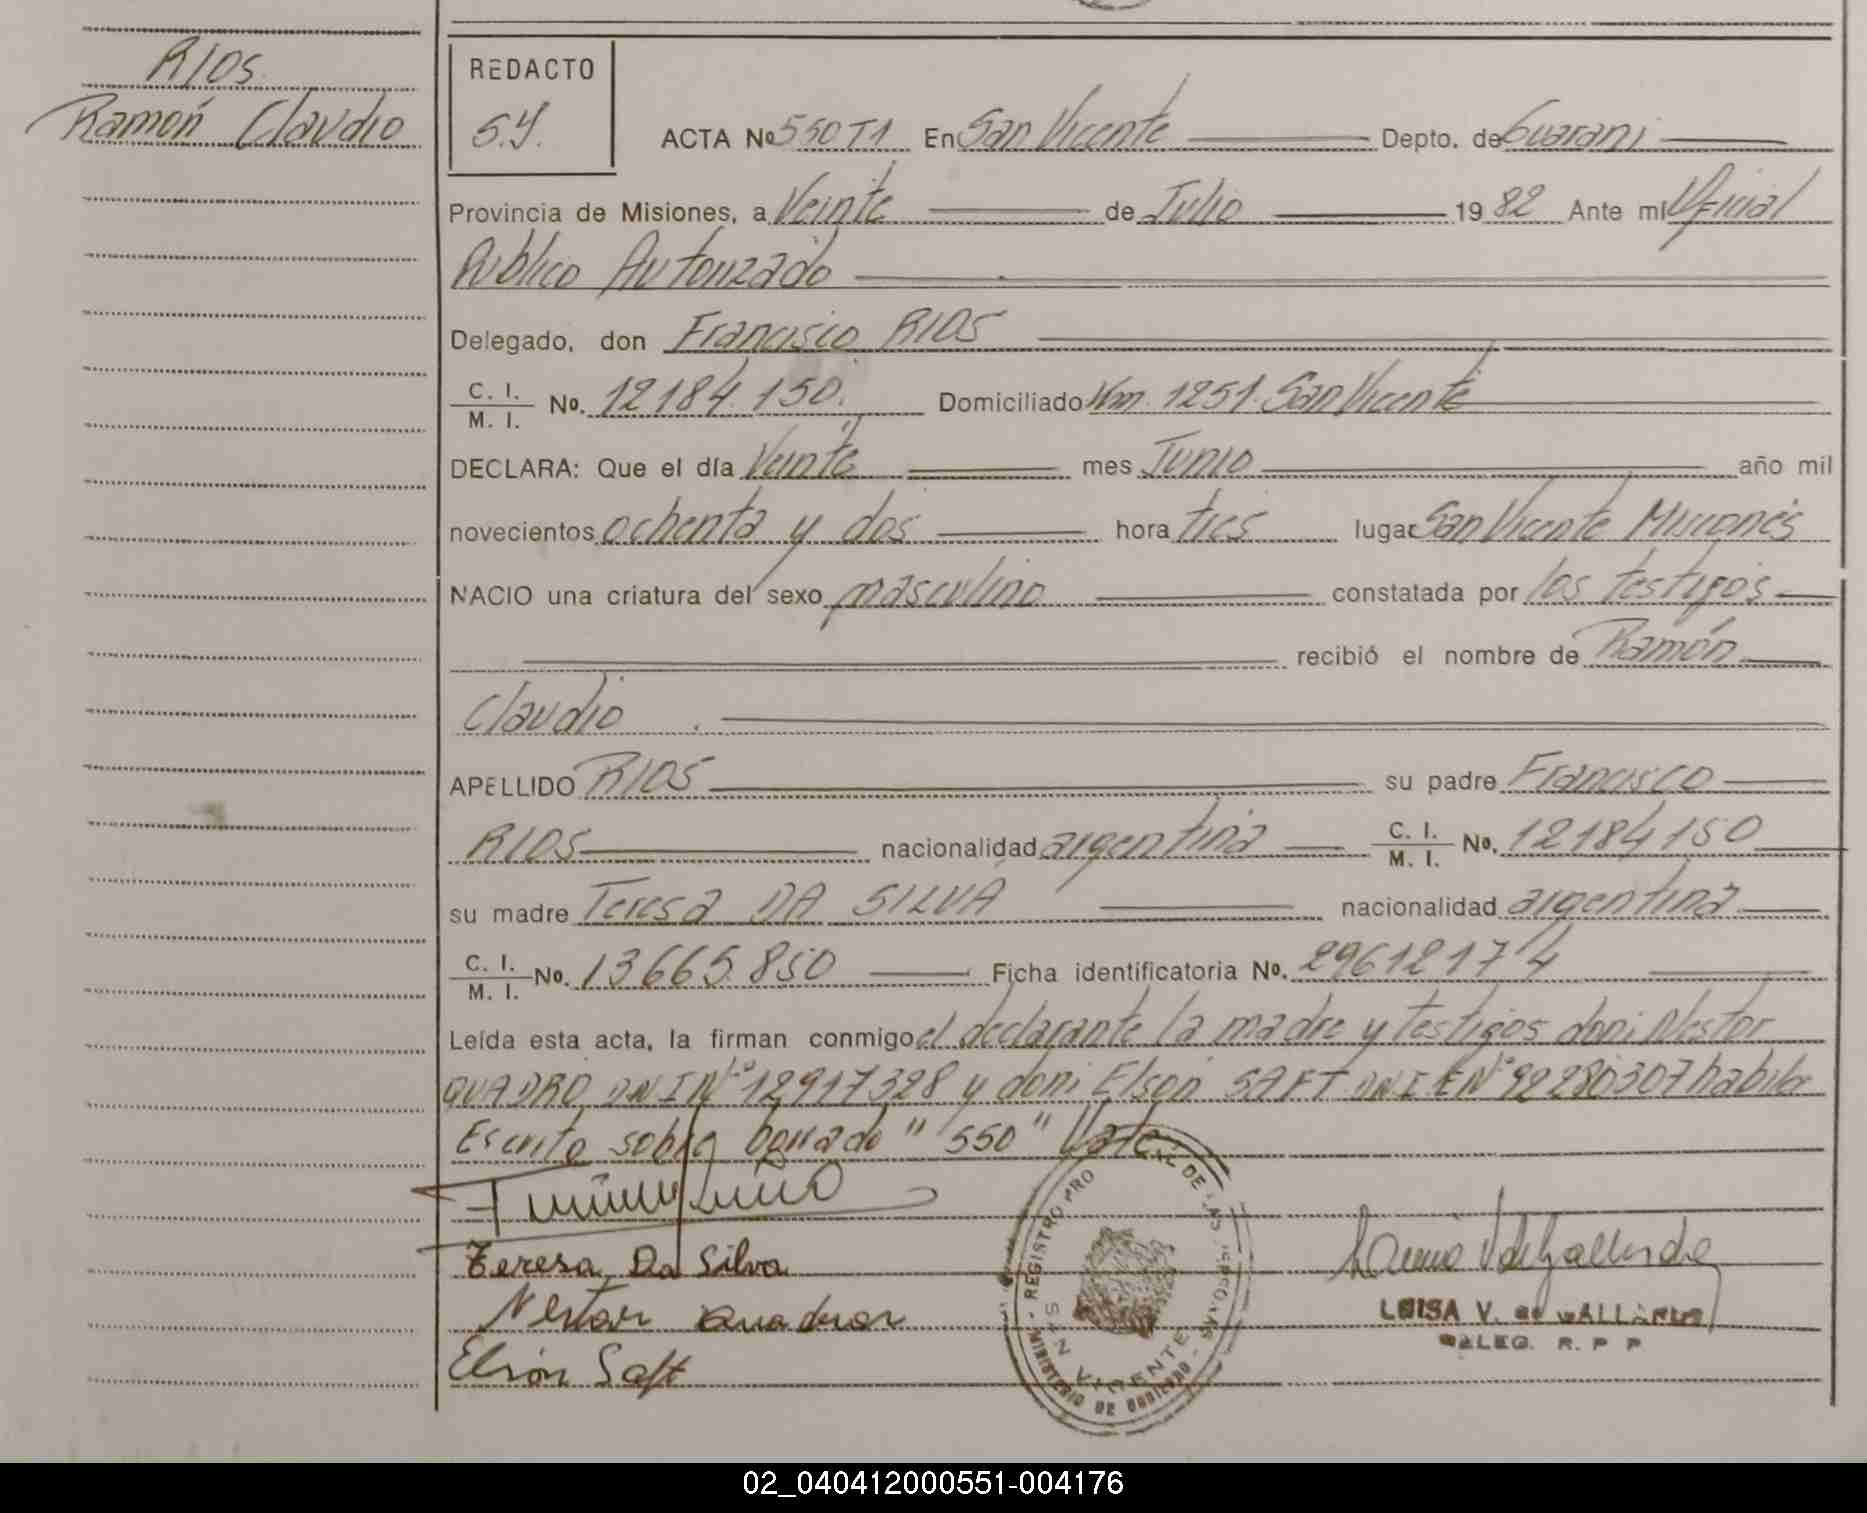 RIOS
Ramón Claudio
REDACTO
S.Y.
ACTA Nº 550 T1 En San Vicente Depto. de Guarani
Provincia de Misiones, a Veinte de Julio 1982 Ante mí Oficial
Público Autorizado
Delegado, don Francisco RIOS
C. I.
M. I. Nº. 12184.150. Domiciliado Km. 1251. San Vicente
DECLARA: Que el día Veinte mes Junio año mil
novecientos ochenta y dos hora tres lugar San Vicente Misiones
NACIO una criatura del sexo masculino constatada por los testigos
recibió el nombre de Ramón
Claudio
APELLIDO RIOS su padre Francisco
RIOS nacionalidad argentina C. I. M. I. Nº. 12184150
su madre Teresa DA SILVA nacionalidad argentina
C. I. M. I. Nº. 13665.850 Ficha identificatoria Nº. 29612174
Leída esta acta, la firman conmigo el declarante la madre y testigos don: Nestor
QUADRO DNI Nº 12917328 y don: Elson SAFT DNI.EN° 92280307 habiles
Escrito sobre borrado "550" Vale
Teresa Da Silva
Nestor Quadror
Elson Saft
REGISTRO PRO DE LAS PERSONAS - MINISTERIO DE GOBIERNO -
SAN VICENTE
LUISA V. de GALLARDO
DELEG. R. P P
02_040412000551-004176